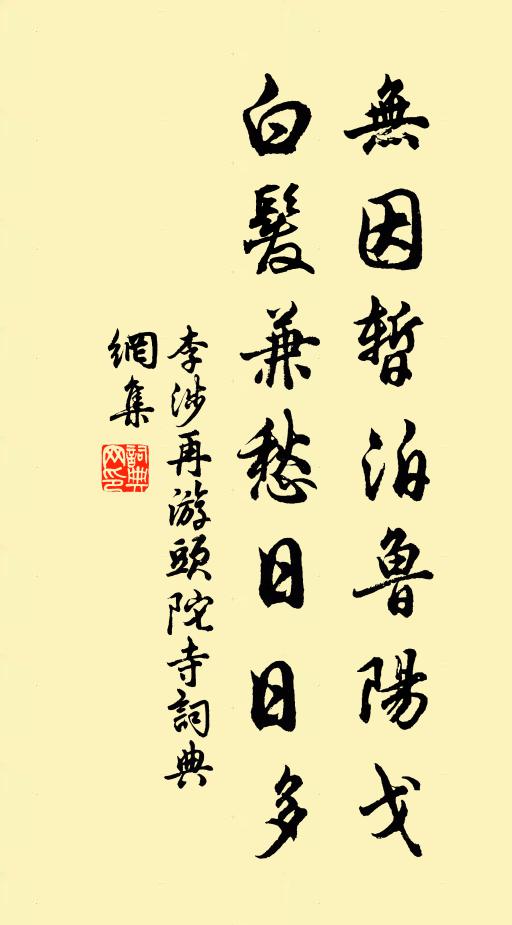 無因暫泊魯陽戈
白髮兼愁日日多
李涉再游頭陀寺詞典
網集
詞典
网印